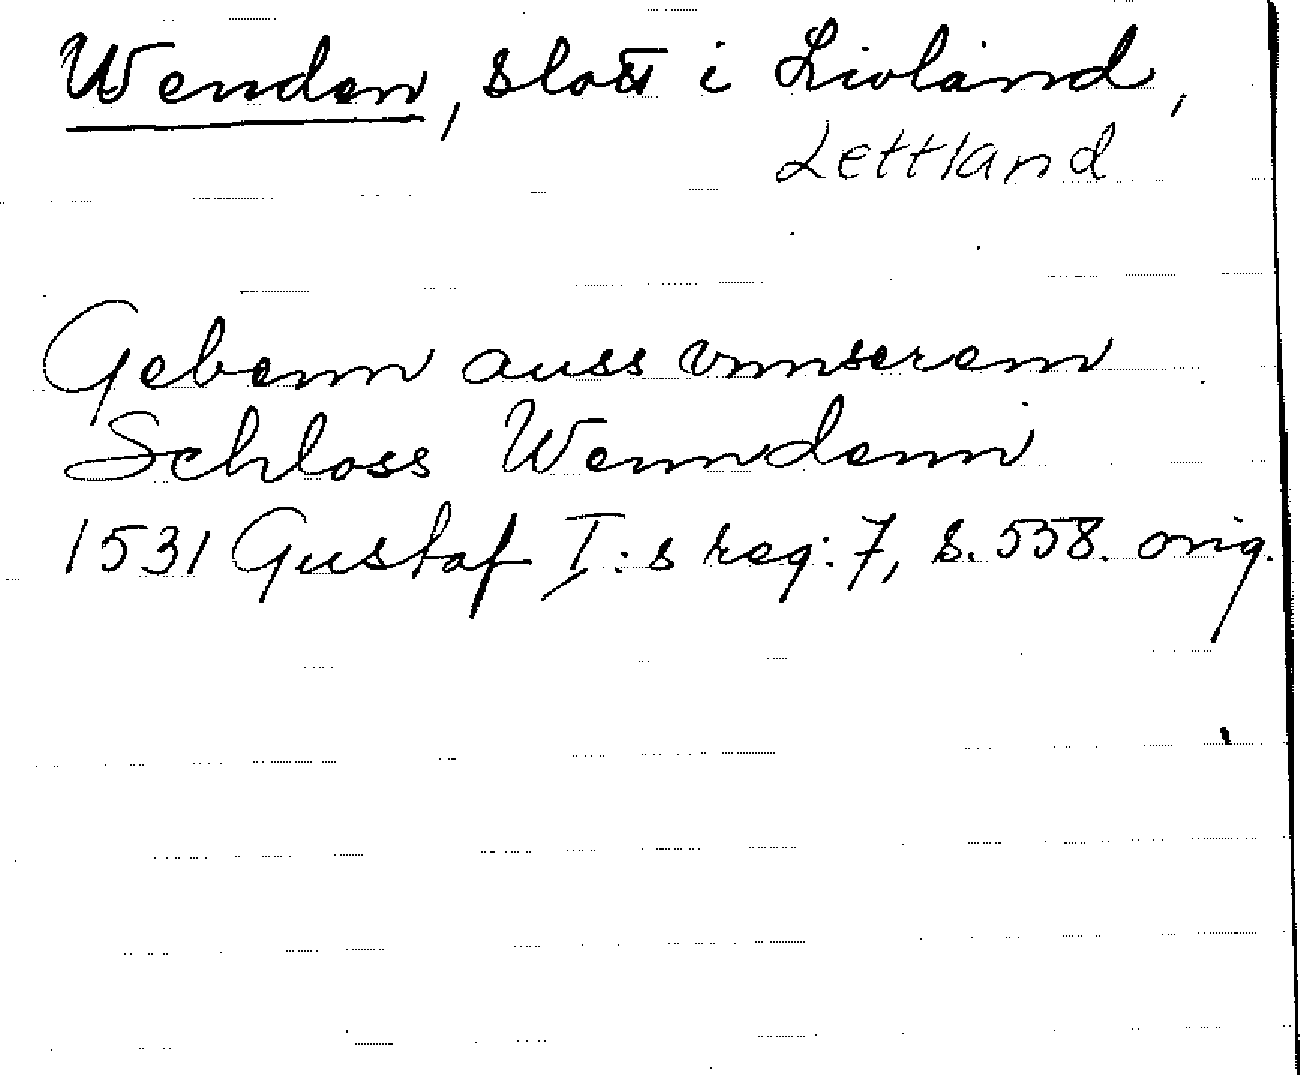 Wenden, slott i Livland,
Lettland
Gebenn auss vnnserem
Schloss Wenndenn
1531 Gustaf I:s reg: 7, s. 558. orig.